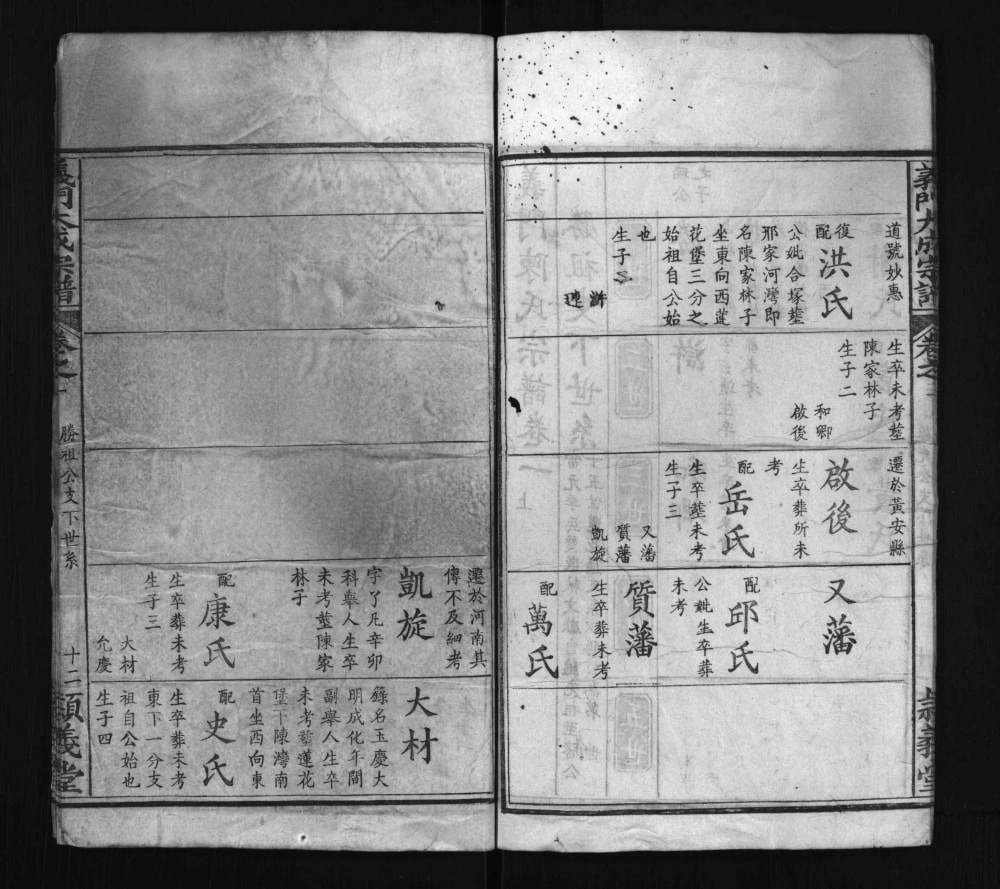 道號妙惠
復
配洪氏
公妣合塚塟
邪家河灣即
名陳家林子
坐東向西蓮
花堡三分之
始祖自公始
也
生子二
滸
璉
生卒未考塟
陳家林子
生子二
和卿
啟後
遷於黃安縣
啟後
生卒葬所未
考
配岳氏
生卒塟未考
生子三
又藩
質藩
凱旋
又藩
配邱氏
公妣生卒葬
未考
質藩
生卒葬未考
配萬氏
遷於河南其
傳不及細考
凱旋
字了凡辛卯
科舉人生卒
未考塟陳家
林子
配康氏
生卒葬未考
生子三
大材
允慶
大材
錄名玉慶大
明成化年間
副舉人生卒
未考塟蓮花
堡下陳灣南
首坐西向東
配史氏
生卒葬未考
東下一分支
祖自公始也
生子四
義門大成宗譜
卷之一
勝祖公支下世系
十二
類義堂